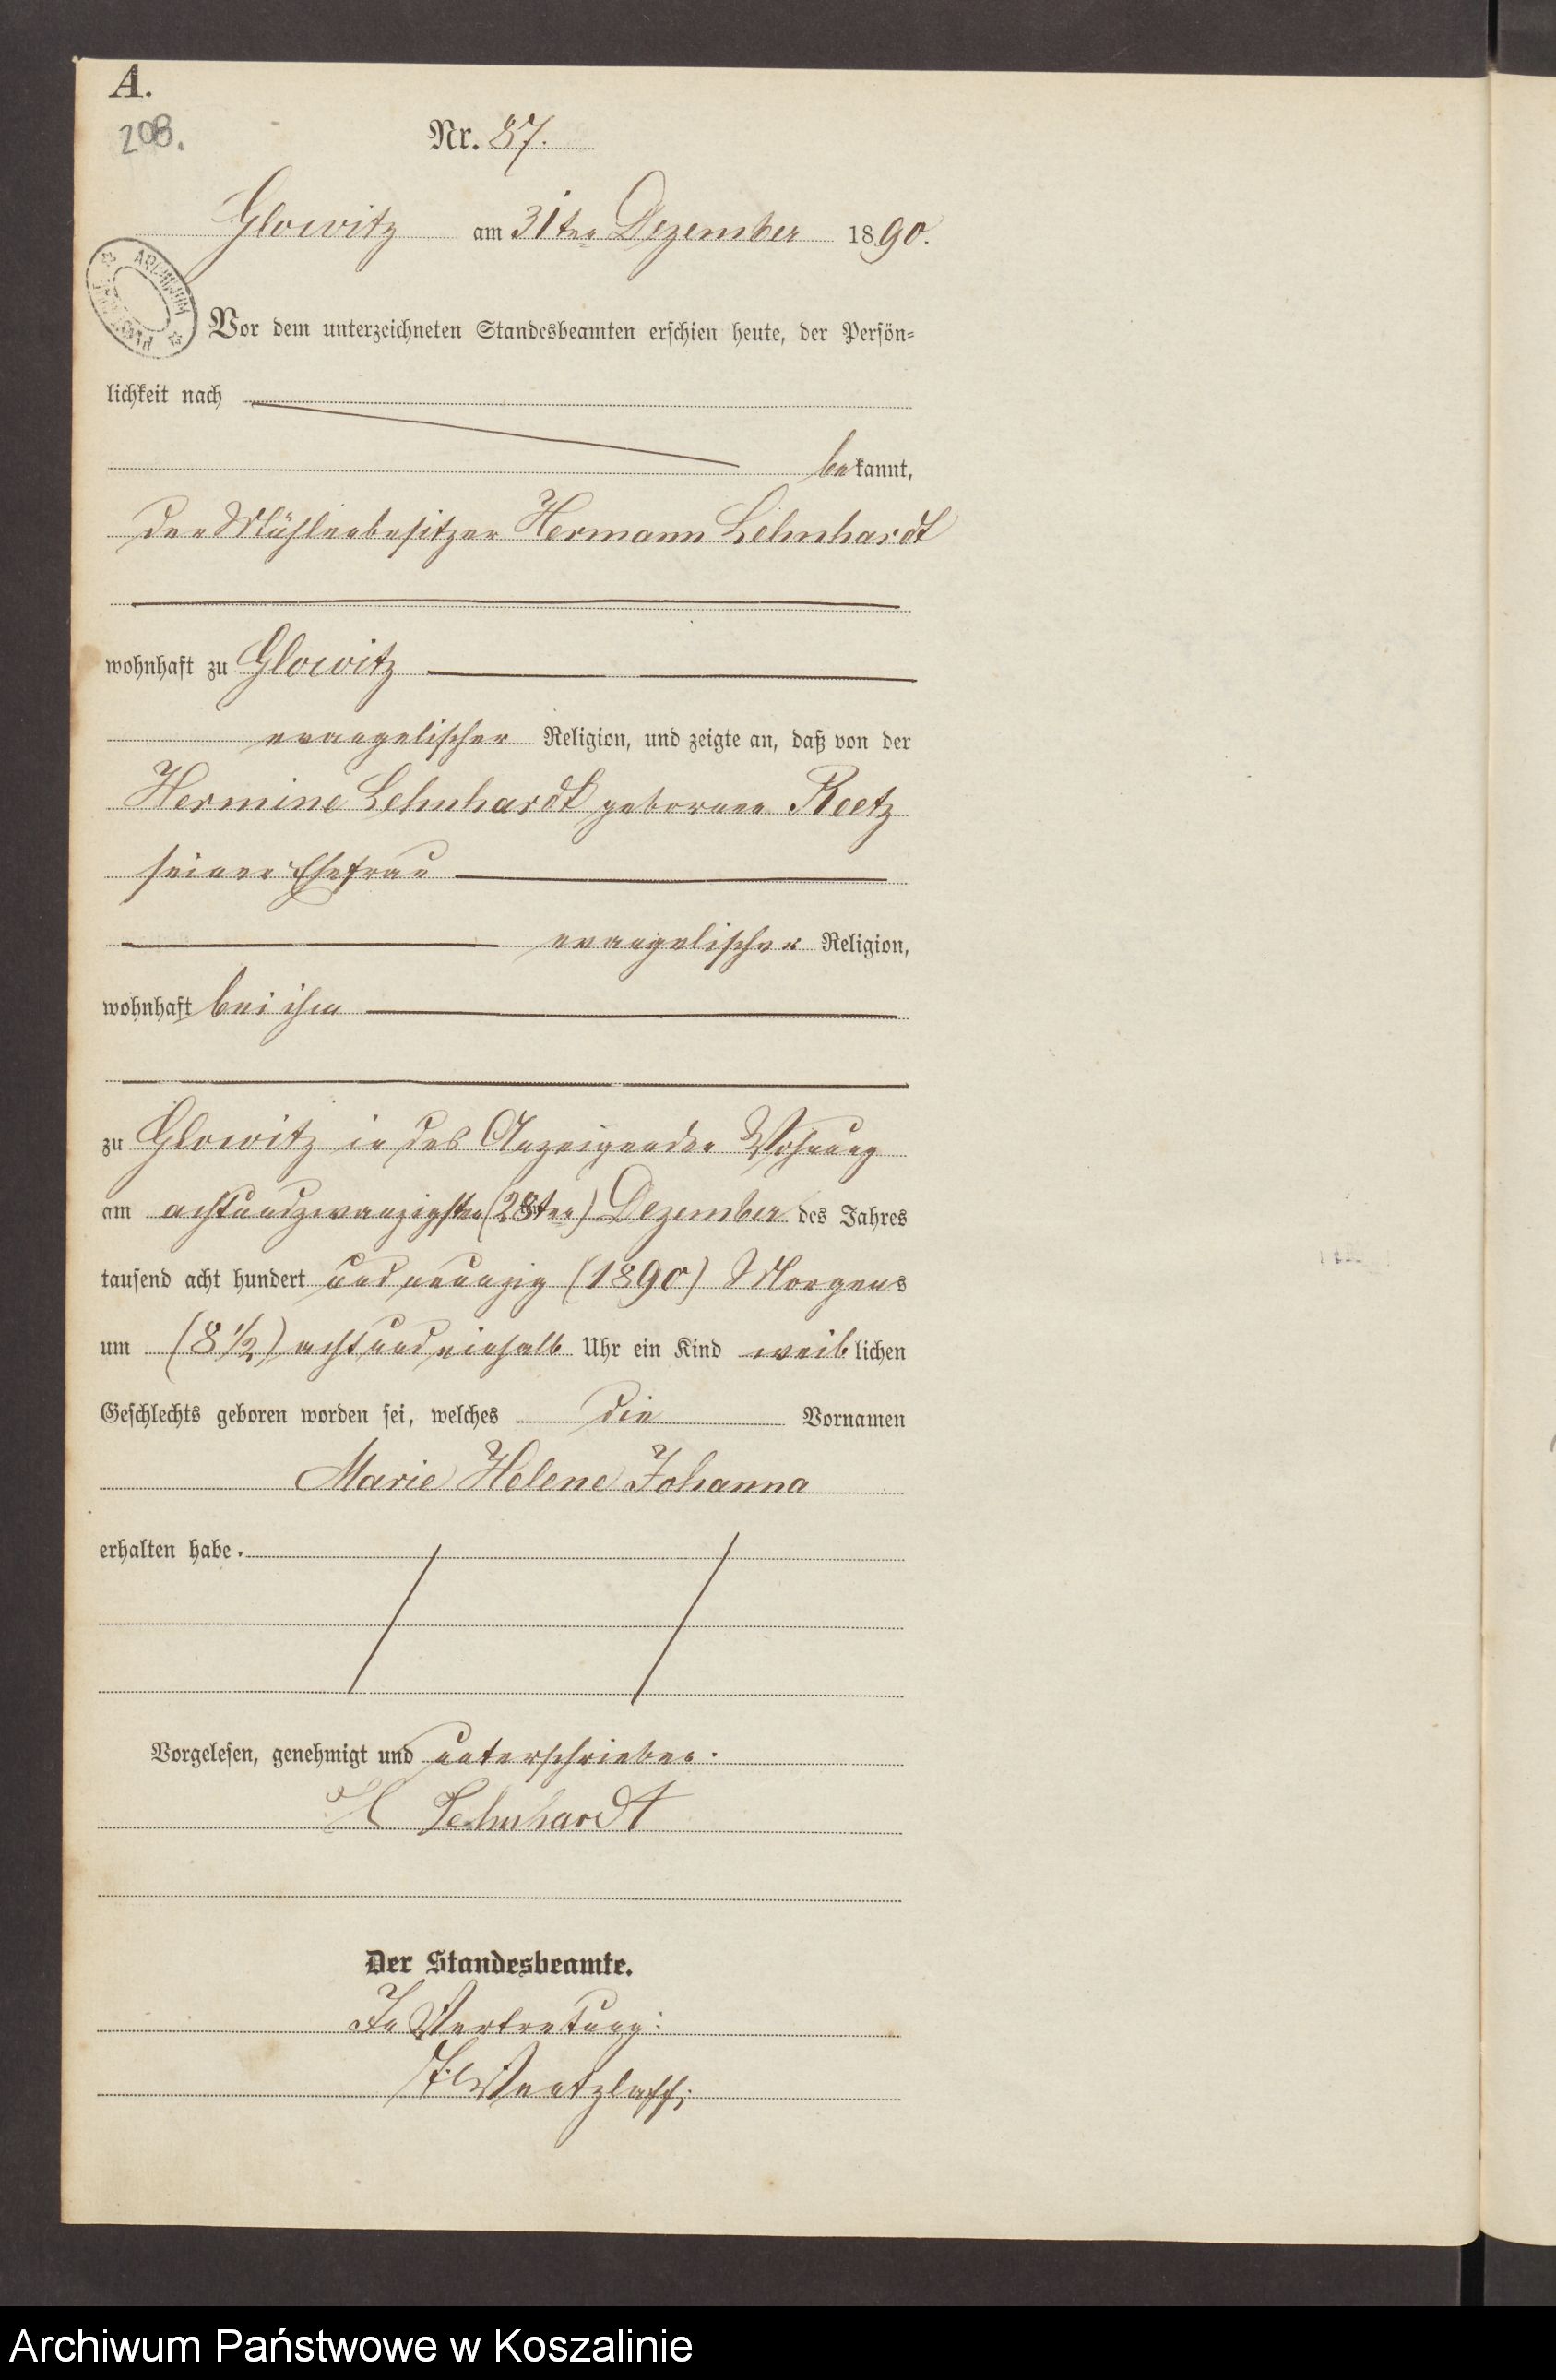 A.
208.
Nr. 87.
Glowitz am 31ten Dezember 1890.
ARCHIWUM
Vor dem unterzeichneten Standesbeamten erschien heute, der Persön-
lichkeit nach
bekannt,
der Mühlenbesitzer Hermann Lehnhardt
wohnhaft zu Glowitz
evangelischer Religion, und zeigte an, daß von der
Hermine Lehnhardt geborenen Reetz
seiner Ehefrau
evangelischer Religion,
wohnhaft bei ihm
zu Glowitz in des Anzeigenden Wohnung
am achtundzwanzigsten (28ten) Dezember des Jahres
tausend acht hundert und neunzig (1890) Morgens
um (8 1/2) acht und einhalb Uhr ein Kind weiblichen
Geschlechts geboren worden sei, welches die Vornamen
Marie Helene Johanna
erhalten habe.
Vorgelesen, genehmigt und unterschrieben.
H Lehnhardt
Der Standesbeamte.
In Vertretung:
Ventzlaff.
Archiwum Państwowe w Koszalinie